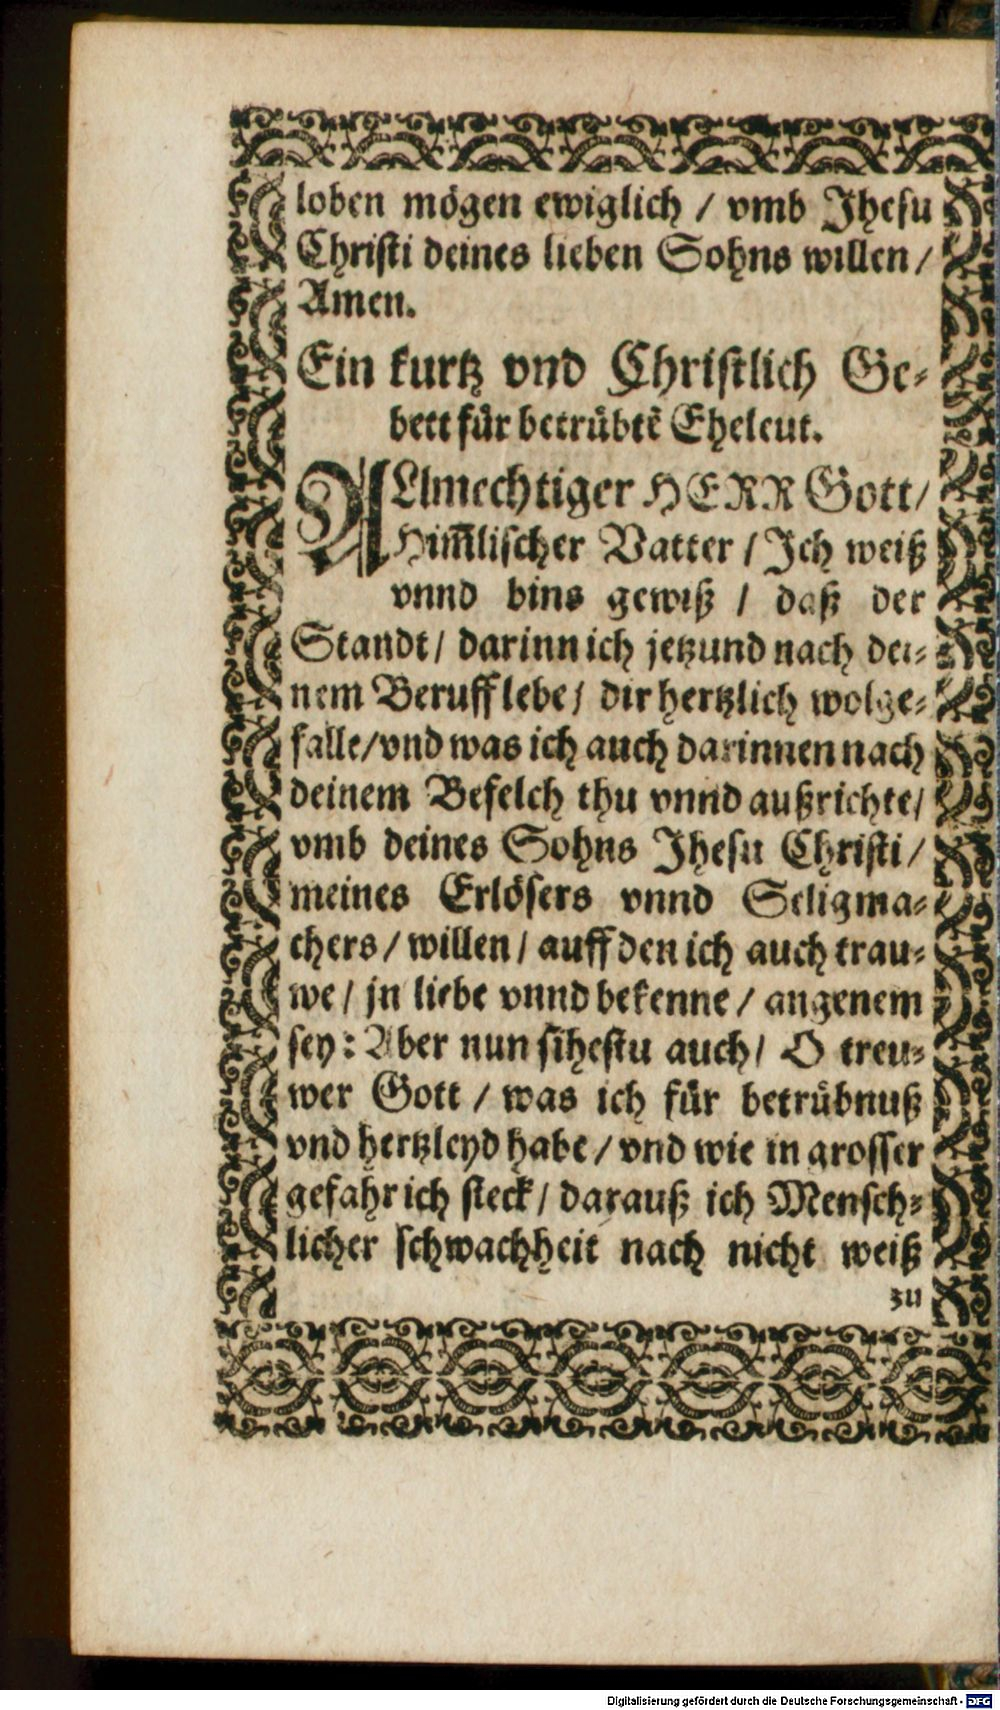 loben mögen ewiglich / vmb Jhesu
Christi deines lieben Sohns willen /
Amen.
Ein kurtz vnd Christlich Ge-
bett für betrübtẽ Eheleut.
ALlmechtiger HERR Gott /
Him̃lischer Vatter / Jch weiß
vnnd bins gewiß / daß der
Standt / darinn ich jetzund nach dei-
nem Beruff lebe / dir hertzlich wolge-
falle / vnd was ich auch darinnen nach
deinem Befelch thu vnnd außrichte /
vmb deines Sohns Jhesu Christi /
meines Erlösers vnnd Seligma-
chers / willen / auff den ich auch trau-
we / jn liebe vnnd bekenne / angenem
sey : Aber nun sihestu auch / O treu-
wer Gott / was ich für betrübnuß
vnd hertzleyd habe / vnd wie in grosser
gefahr ich steck / darauß ich Mensch-
licher schwachheit nach nicht weiß
zu
Digitalisierung gefördert durch die Deutsche Forschungsgemeinschaft - DFG